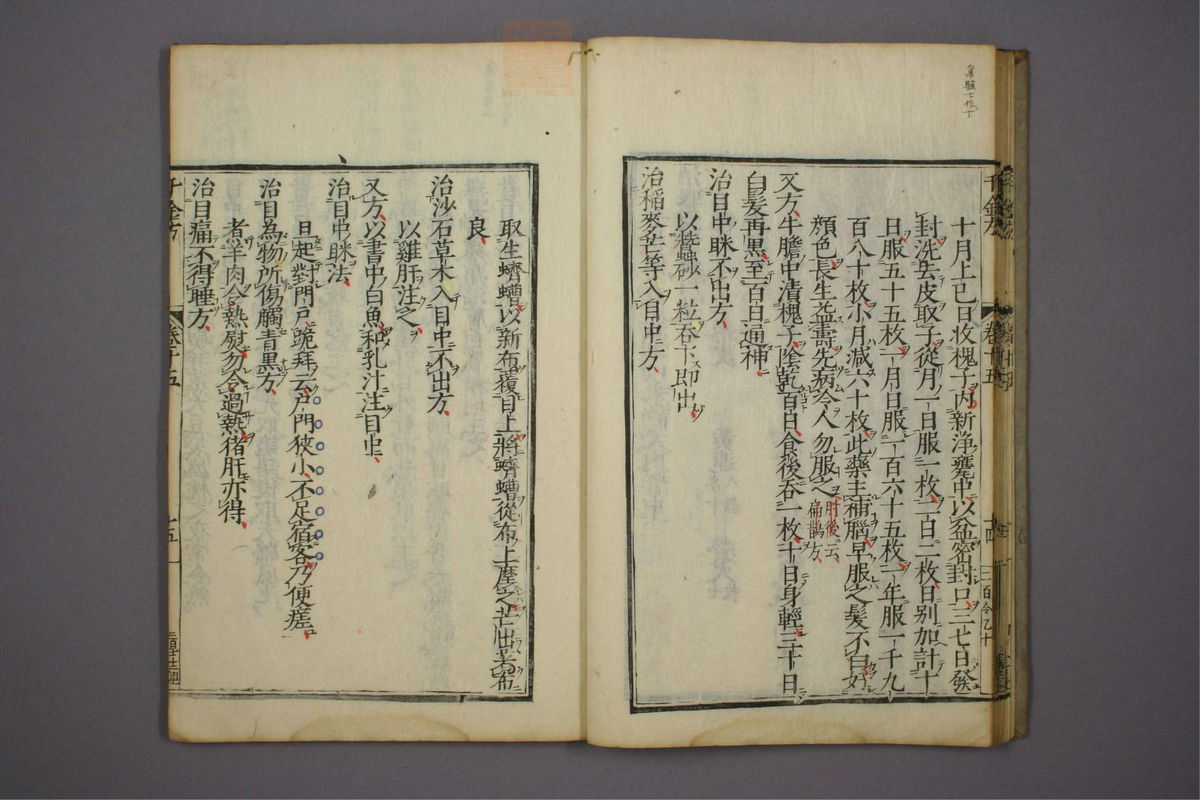 集驗七作丁
千金方 卷十五 十四
十月上巳日收槐子内新淨甕中以盆密封口三七日發
封洗去皮取子從月一日服一枚二日二枚日別加計十
日服五十五枚一月日服一百六十五枚一年服一千九
百八十枚小月減六十枚此藥主補腦早服之髮不白好
顏色長生益壽先病冷人勿服之肘後云扁鵲方
又方牛膽中漬槐子陰乾百日食後吞一枚十日身輕三十日
白髮再黑至百日通神
治目中眯不出方
以蠶砂一粒吞下即出
治稻麥芒等入目中方
取生蠐螬以新布覆目上將蠐螬從布上摩之芒出著布
良
治沙石草木入目中不出方
以雞肝注之
又方以書中白魚和乳汁注目中
治目中眯法
旦起對門戶跪拜云戶門狹小不足宿客乃便瘥
治目為物所傷觸青黑方
煮羊肉令熱熨勿令過熱猪肝亦得
治目痛不得睡方
千金方 卷十五 十五